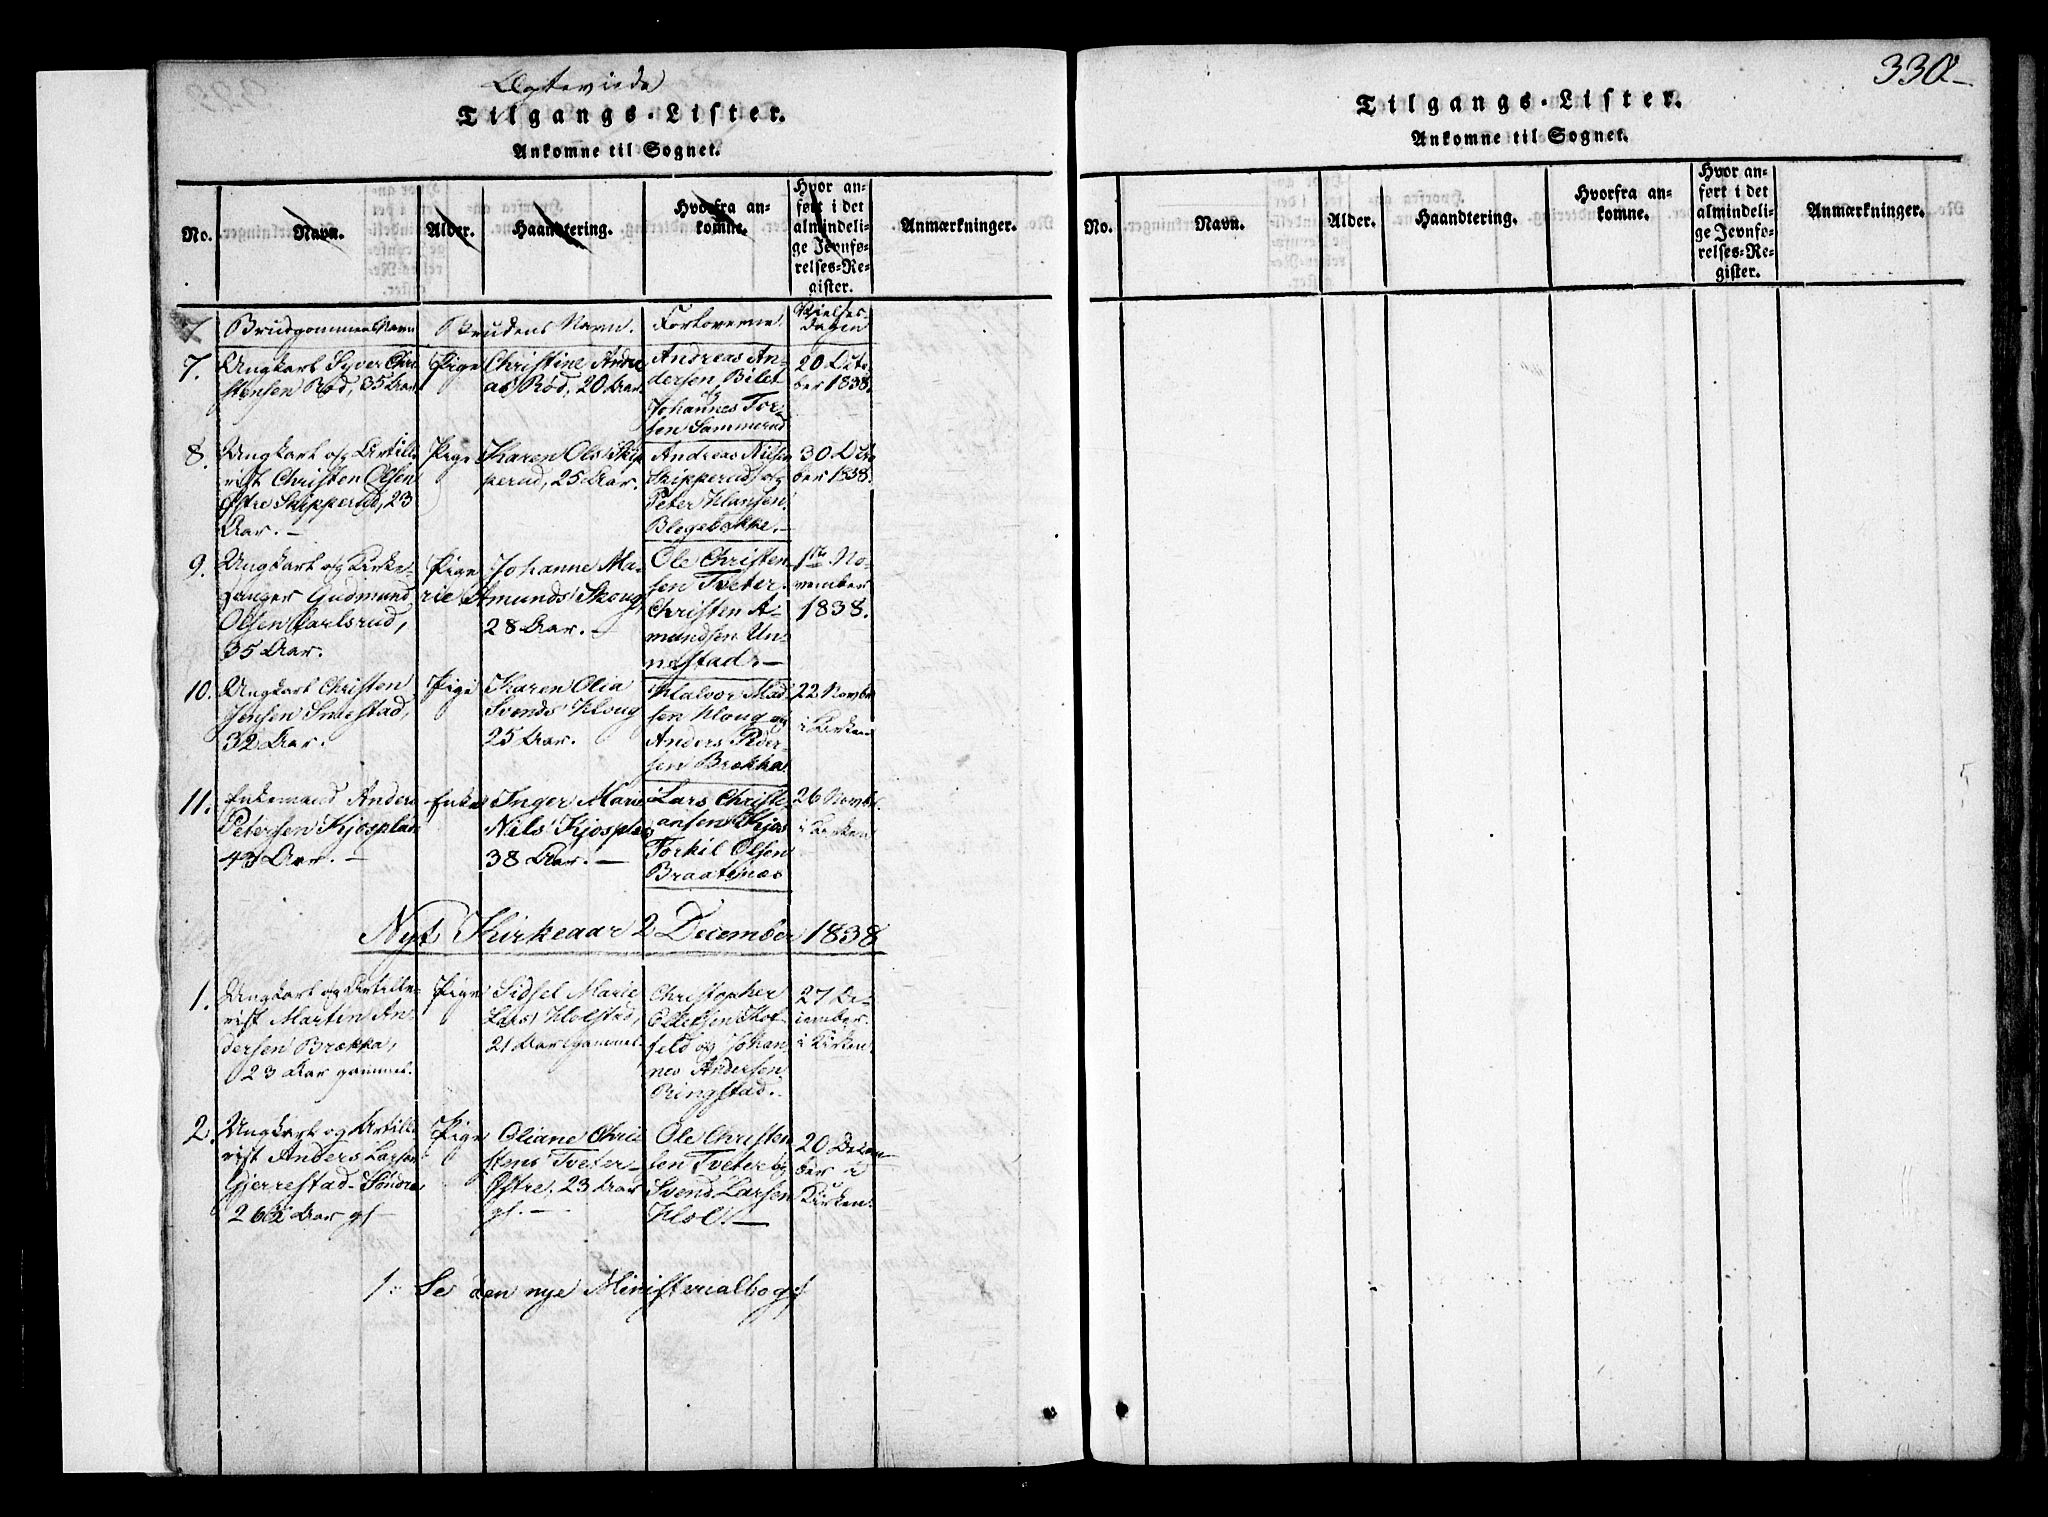 Ægteviede
Tilgangs-Lister.
Ankomne til Sognet.
No.
Navn.
Alder.
Haandtering.
Hvorfra an-
komne.
Hvor an-
ført i det
almindeli-
ge Jevnfø-
relses-Re-
gister.
Anmærkninger.
Brudgommens Navn
Brudens Navn.
Forloverne.
Vielses-
dagen
7. Ungkarl Syver Chri-
stensen Rød, 35 Aar
Pige Christine Andre-
as Rød, 20 Aar.
Andreas An-
dersen Bilet
og
Johannes Tor-
sen Sommerud
20 Octo-
ber 1838.
8. Ungkarl og Artille-
rist Christen Olsen
Østre Skipperud, 23
Aar. —
Pige Karen Ols Skip-
perud, 25 Aar.
Andreas
Skipperud og
Peter Hansen
Blegebakke. —
30 Octo
ber 1838.
9. Ungkarl og Kirke-
sanger Gudmund
Olsen Carlsrud,
35 Aar.
Pige Johanne Ma-
rie Amunds Skoug,
28 Aar. —
Ole Christen-
sen Tveter.
Christen A-
mundsen Un-
nestad. —
1ste No-
vember
1838.
10. Ungkarl Christen
Jensen Smestad,
32 Aar.
Pige Karen Olia
Svends Houg
25 Aar.
Halvor Mad-
sen Houg og
Anders Peder-
sen Brække
22 Novbr
i Kirken
11. Enkemand Anders
Petersen Kjosplads
43 Aar. —
Enke Inger Marie
Nils Kjosplads
38 Aar. —
Lars Christi-
ansen Kjos
Torkil Olsen
Braatenæs
26 Novbr.
i Kirken
Nyt Kirkeaar 2 December 1838
1. Ungkarl og Artille-
rist Martin An-
dersen Brække,
23 Aar gammel.
Pige Sidsel Marie
Lars Holstad,
21 Aar gammel
Christopher
Ellefsen Hof-
feld og Johan-
nes Andersen
Ringstad.
27 De-
cember
i Kirken.
2. Ungkarl og Artille-
rist Anders Larsen
Gjerrestad Søndre
26½ Aar gl
Pige Oliane Chri-
stens Tveter
Østre, 23 Aar
gl. —
Ole Christen-
sen Tveter og
Svend Larsen
Hol. —
20 Decem-
ber i
Kirken.
/: Se den nye Ministerialbog :/
330
Tilgangs-Lister.
Ankomne til Sognet.
No.
Navn.
Alder.
Haandtering.
Hvorfra an-
komne.
Hvor an-
ført i det
almindeli-
ge Jevnfø-
relses-Re-
gister.
Anmærkninger.